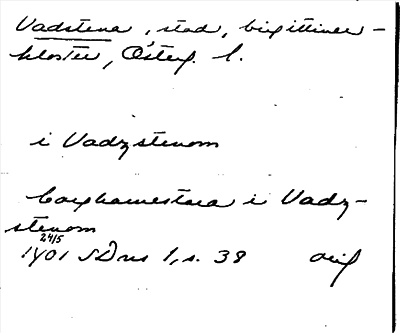 Vadstena, stad, birgittiner-
kloster, Österg. l.
i Vadzstenom
borghamestara i Vadz-
stenom
24/5
1401 SDns 1, s. 38 orig